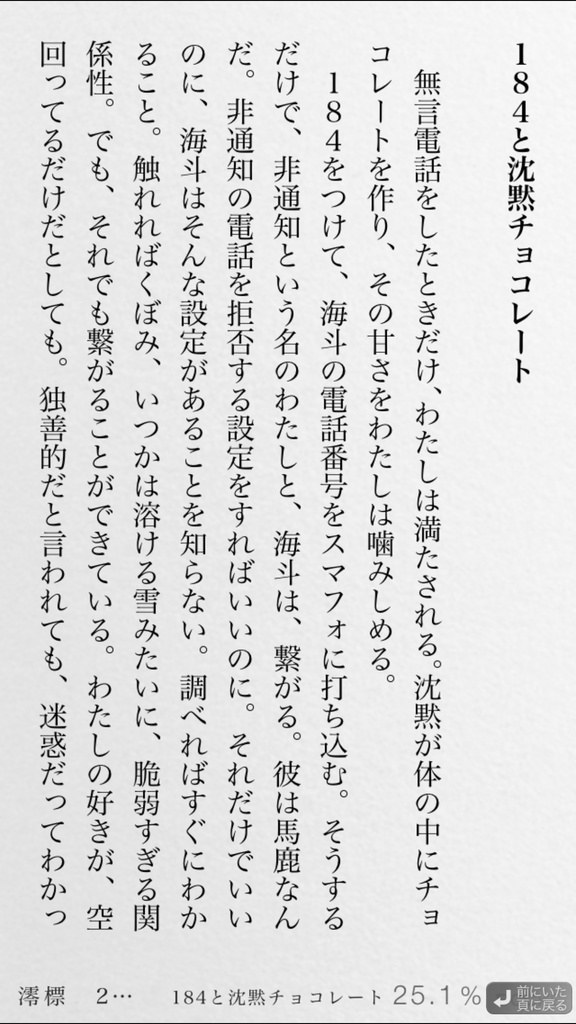 184と沈黙チョコレート
無言電話をしたときだけ、わたしは満たされる。沈黙が体の中にチョ
コレートを作り、その甘さをわたしは噛みしめる。
184をつけて、海斗の電話番号をスマフォに打ち込む。そうする
だけで、非通知という名のわたしと、海斗は、繋がる。彼は馬鹿なん
だ。非通知の電話を拒否する設定をすればいいのに。それだけでいい
のに、海斗はそんな設定があることを知らない。調べればすぐにわか
ること。触れればくぼみ、いつかは溶ける雪みたいに、脆弱すぎる関
係性。でも、それでも繋がることができている。わたしの好きが、空
回ってるだけだとしても。独善的だと言われても、迷惑だってわかっ
澪標 2… 184と沈黙チョコレート 25.1%
前にいた
頁に戻る